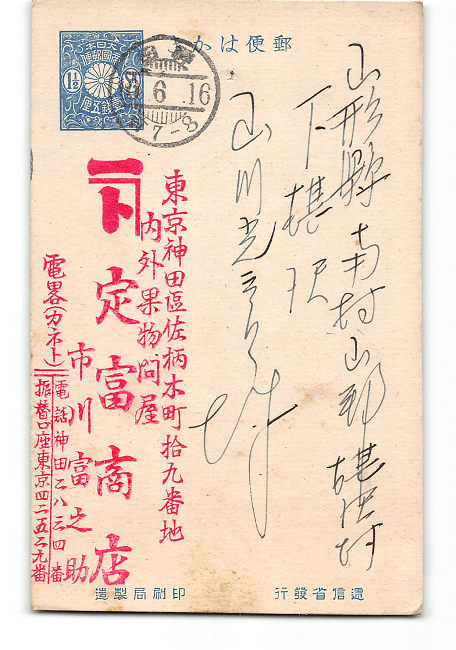 郵便はがき
大日本帝國郵便
1½
壹錢五厘
6.16
7-8
山形縣南村山郡堀田村
山川光
東京神田區佐柄木町拾九番地
内外果物問屋
ト
定富商店
市川富之助
電畧(カネト)
電話神田二八三四番
振替口座東京四二五二九番
遞信省發行
印刷局製造